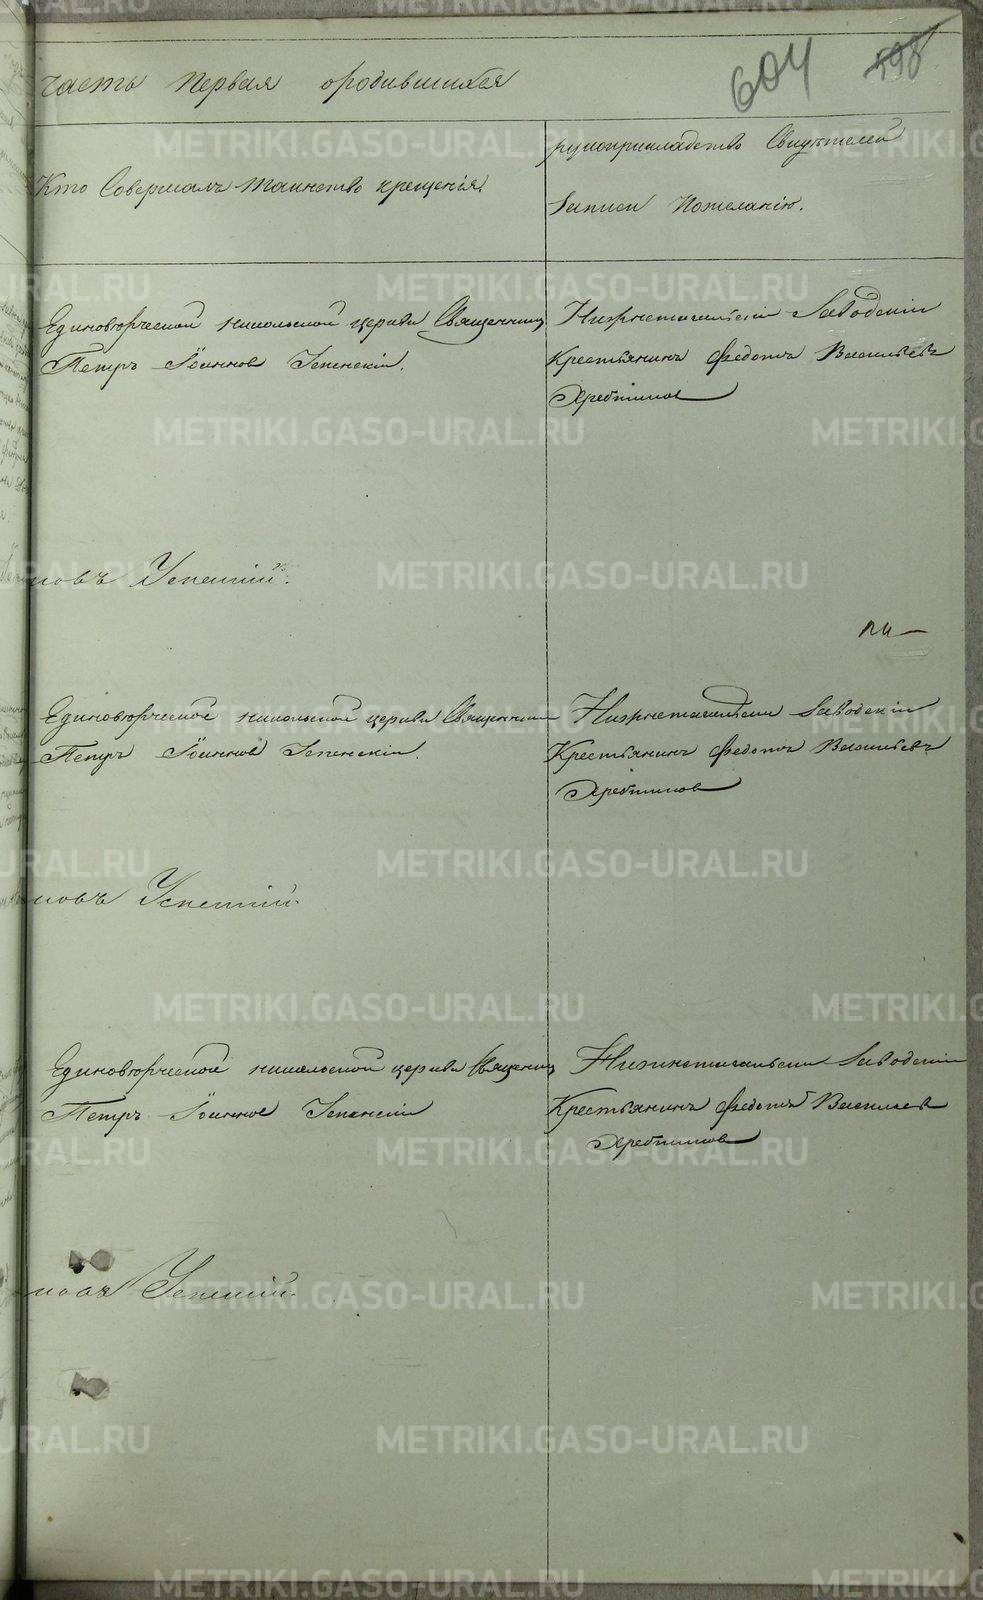 часть первая ородившихся
604 598
Кто Совершалъ таинство крещенія.
рукоприкладство Свидетелей
Записи Пожеланію.
Единоверческой никольской церкви Священникъ
Петръ Іоанновъ Успенскій.
Нижнетагильскій Заводскій
Крестьянинъ Федотъ Васильевъ
Хребтиков
новъ Успенскій.
Единоверческой никольской церкви Священникъ
Петръ Іоанновъ Успенскій.
Нижнетагильскій Заводскій
Крестьянинъ Федотъ Васильевъ
Хребтиков
новъ Успенскій.
Единоверческой никольской церкви Священникъ
Петръ Іоанновъ Успенскій
Нижнетагильскій Заводскій
Крестьянинъ Федотъ Васильев
Хребтиков
новъ Успенскій.
METRIKI.GASO-URAL.RU